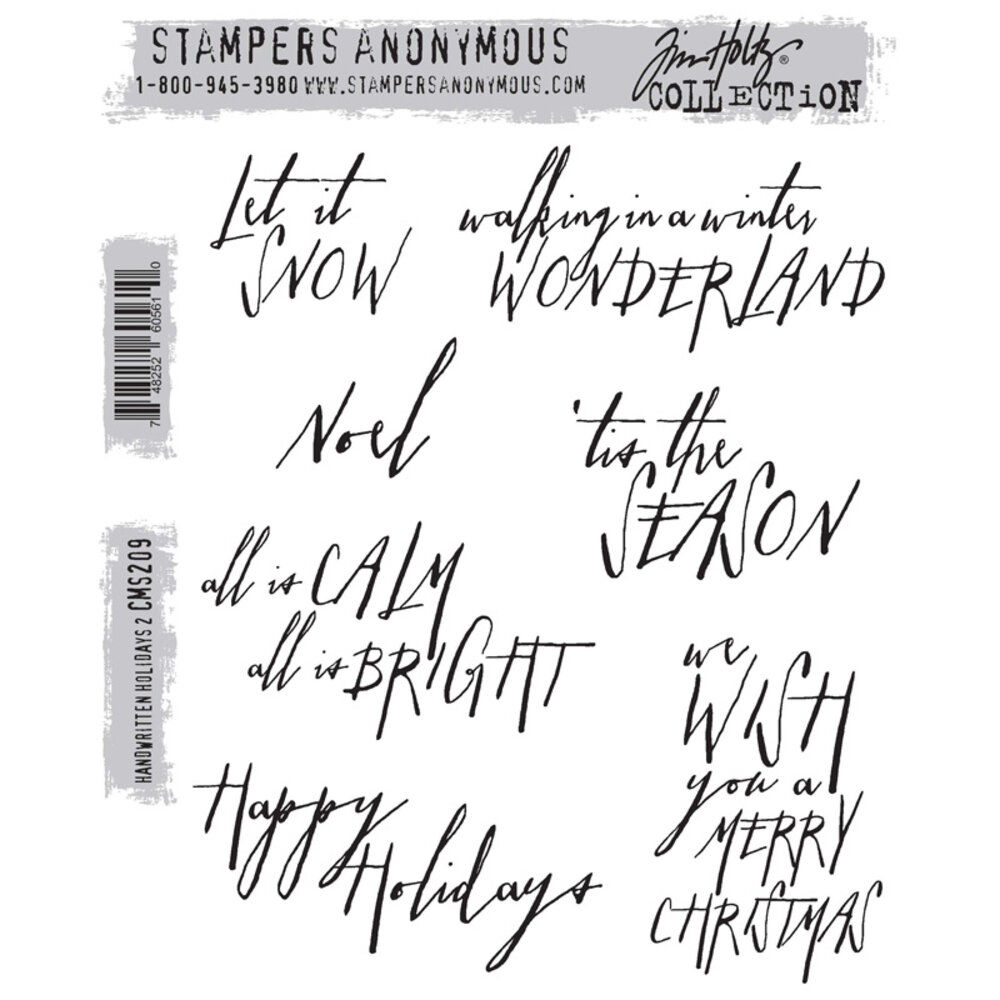 STAMPERS ANONYMOUS
1-800-945-3980 WWW.STAMPERSANONYMOUS.COM
Tim Holtz®
COLLECTiON
Let it
SNOW
walking in a winter
WONDERLAND
7 48252 60561 0
Noel
'tis the
SEASON
HANDWRITTEN HOLIDAYS 2 CMS209
all is CALM
all is BRIGHT
we
WISH
you a
MERRY
CHRISTMAS
Happy
Holidays